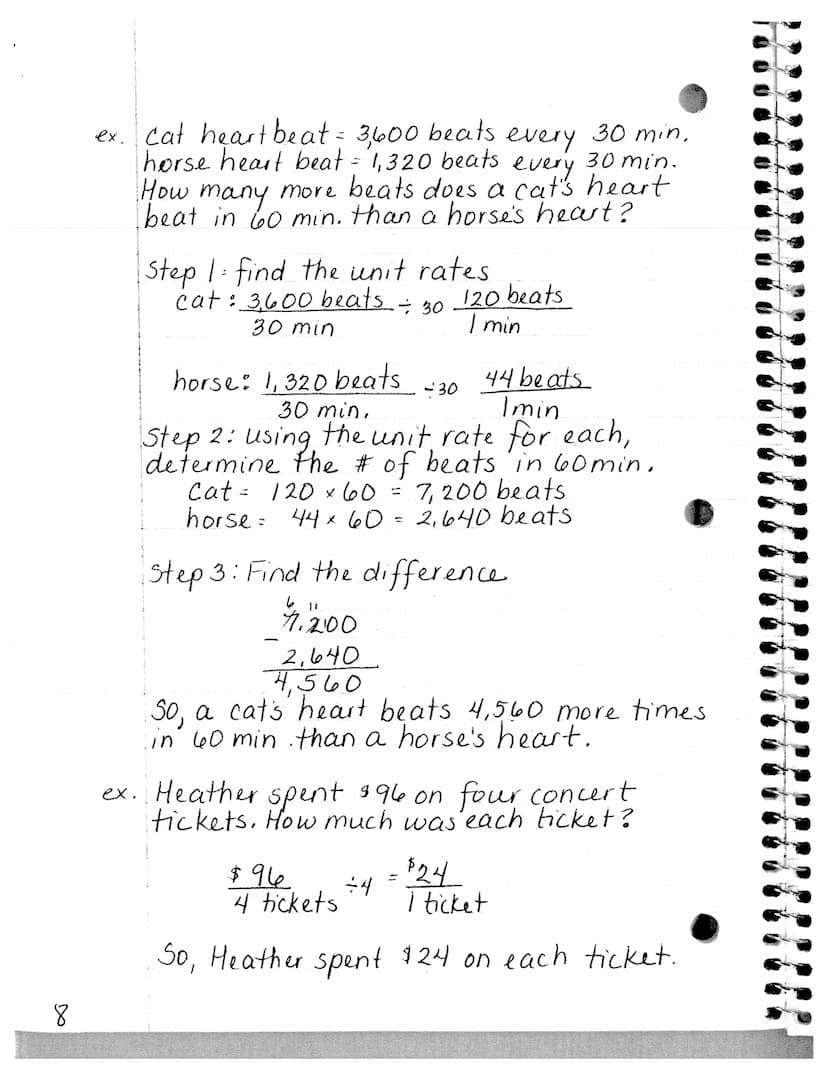 ex. Cat heartbeat = 3,600 beats every 30 min.
horse heart beat = 1,320 beats every 30 min.
How many more beats does a cat's heart
beat in 60 min. than a horse's heart?
Step 1: find the unit rates
cat: 3,600 beats ÷ 30 120 beats
30 min 1 min
horse: 1,320 beats ÷30 44 beats
30 min. 1 min
Step 2: using the unit rate for each,
determine the # of beats in 60 min.
Cat = 120 x 60 = 7,200 beats
horse = 44 x 60 = 2,640 beats
Step 3: Find the difference
6 11
7,200
- 2,640
4,560
So, a cat's heart beats 4,560 more times
in 60 min. than a horse's heart.
ex. Heather spent $96 on four concert
tickets. How much was each ticket?
$96 ÷4 = $24
4 tickets 1 ticket
So, Heather spent $24 on each ticket.
8